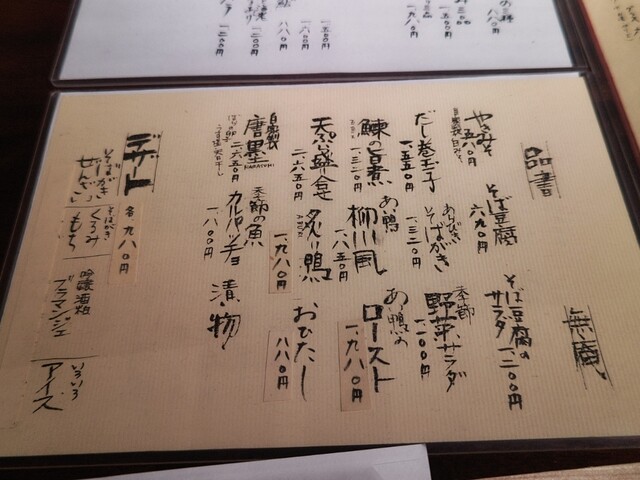 品書
無庵
やきみそ
五八〇円
そば豆腐
六九〇円
そば豆腐の
サラダ
一、二〇〇円
だし巻玉子
一、五五〇円
あらびき
そばがき
一、三二〇円
季節
野菜サラダ
一、一〇〇円
鰊の旨煮
一、三二〇円
あい鴨
柳川風
一、八五〇円
あい鴨の
ロースト
一、九八〇円
天ぷら盛り合せ
二、六五〇円
炙り鴨
ABURI
一、九八〇円
おひたし
八八〇円
自家製
唐墨
KARASUMI
二、六五〇円
季節の魚
カルパッチョ
一、八〇〇円
漬物
デザート
各、九八〇円
そばがき
ぜんざい
そばがき
くるみ
もち
吟醸酒粕
ブラマンジェ
いろいろ
アイス